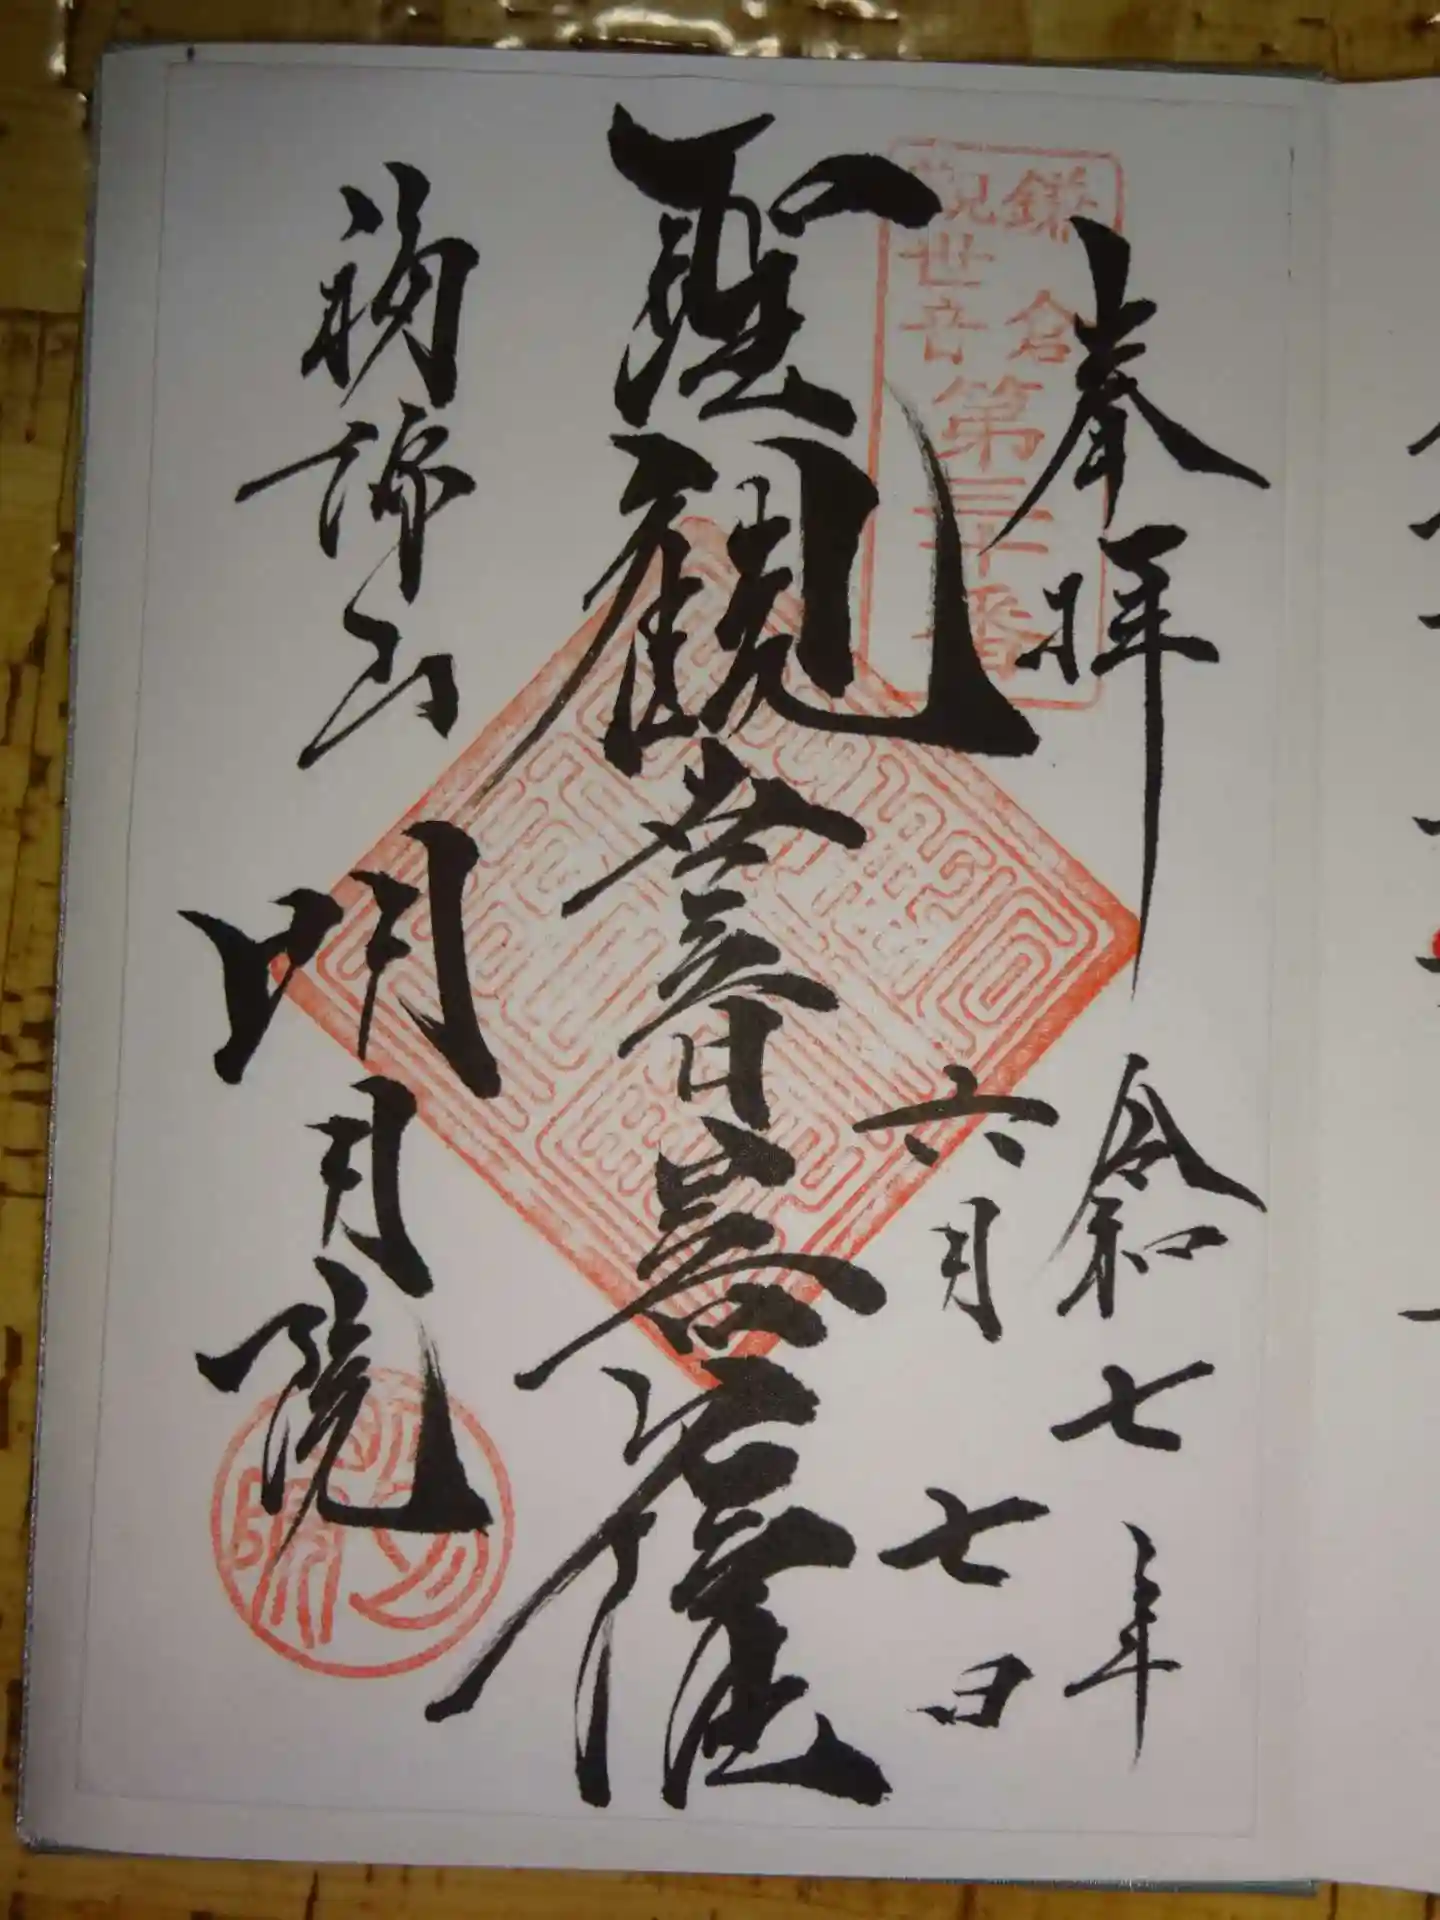 奉拝
令和七年
六月七日
鎌倉
観世音
第三十番
聖観世音菩薩
福源山
明月院